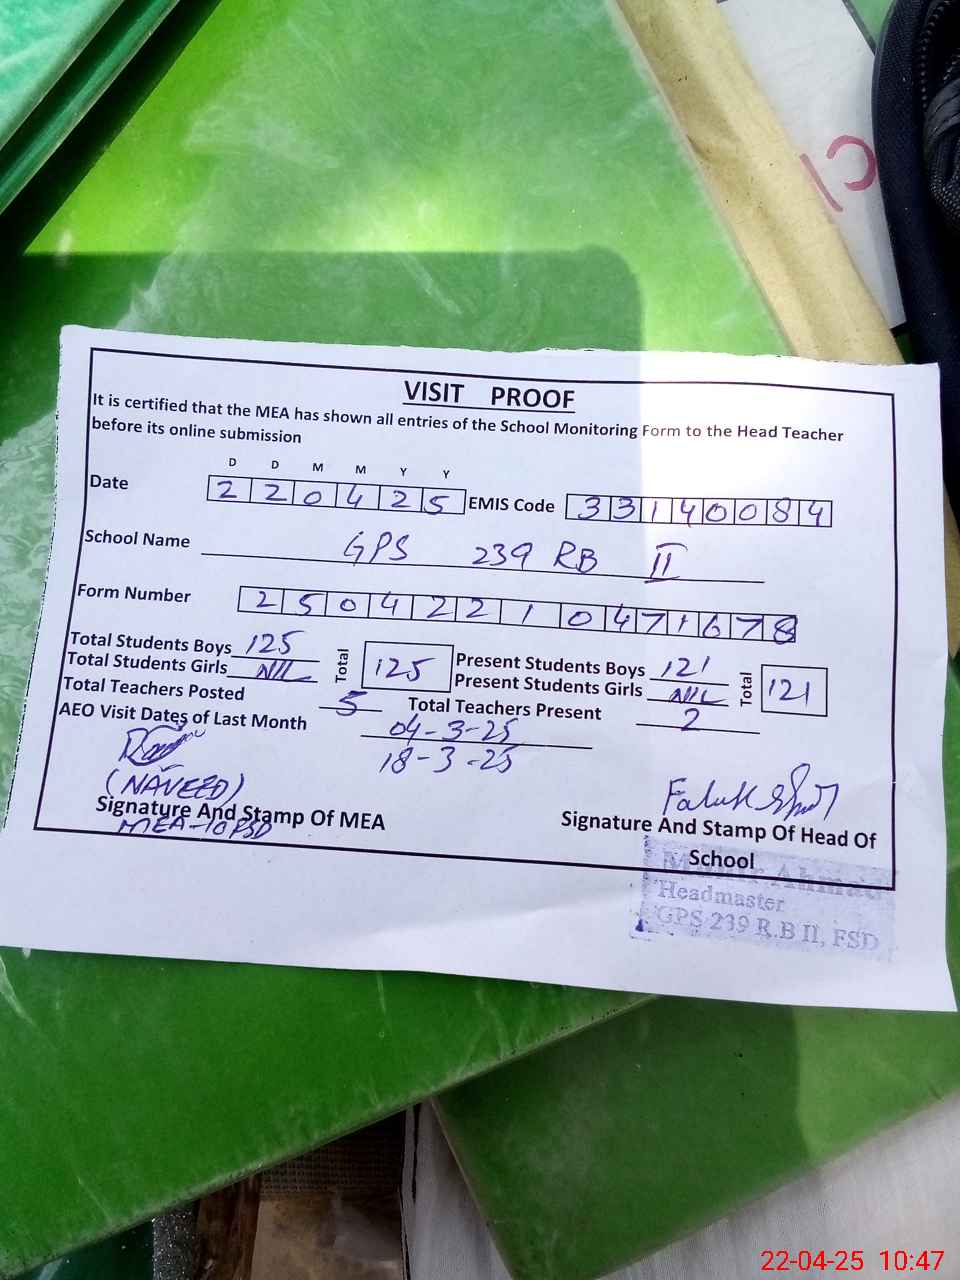 VISIT PROOF
It is certified that the MEA has shown all entries of the School Monitoring Form to the Head Teacher
before its online submission
D D M M Y Y
Date 2 2 0 4 2 5 EMIS Code 3 3 1 4 0 0 8 4
School Name GPS 239 RB II
Form Number 2 5 0 4 2 2 1 0 4 7 1 6 7 8
Total Students Boys 125 Total 125 Present Students Boys 121 Total 121
Total Students Girls NIL Present Students Girls NIL
Total Teachers Posted 5 Total Teachers Present 2
AEO Visit Dates of Last Month 04-3-25
18-3-25
(NAVEED)
Signature And Stamp Of MEA
MEA-10 FSD
Signature And Stamp Of Head Of
School
Ahmad
Headmaster
GPS 239 R.B II, FSD
22-04-25 10:47